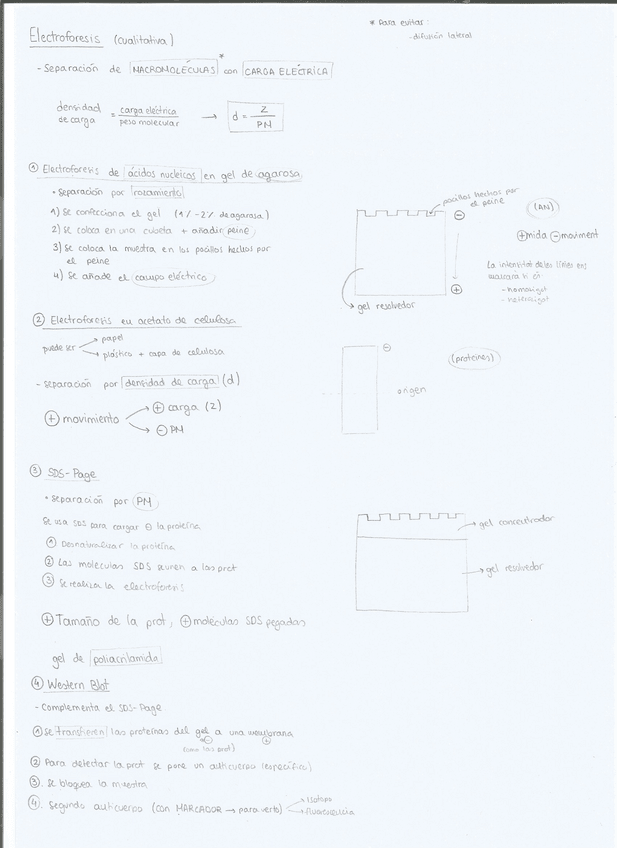 Electroforesis (cualitativa)
* Para evitar:
- difusión lateral
- Separación de MACROMOLÉCULAS* con CARGA ELÉCTRICA
densidad de carga = carga eléctrica / peso molecular → d = Z / PM
① Electroforesis de ácidos nucleicos en gel de agarosa
• Separación por rozamiento
1) Se confecciona el gel (1% -2% de agarosa)
2) Se coloca en una cubeta + añadir peine
3) Se coloca la muestra en los pocillos hechos por
el peine
4) Se añade el campo eléctrico
pocillos hechos por
el peine
⊖
⊕
gel resolvedor
(AN)
⊕mida ⊖moviment
La intensitat de les línies ens
marcarà si és
- homozigot
- heterozigot
② Electroforesis en acetato de celulosa
puede ser
papel
plástico + capa de celulosa
- Separación por densidad de carga (d)
⊕ movimiento
⊕ carga (Z)
⊖ PM
⊖
(proteïnes)
origen
③ SDS-Page
• Separación por PM
Se usa SDS para cargar ⊖ la proteína
① Desnaturalizar la proteína
② Las moléculas SDS se unen a las prot
③ Se realiza la electroforesis
⊕ Tamaño de la prot, ⊕ moléculas SDS pegadas
gel de poliacrilamida
gel concentrador
gel resolvedor
④ Western Blot
- Complementa el SDS-Page
① Se transfieren las proteínas del gel a una membrana
⊖ ⊕
(como las prot)
② Para detectar la prot se pone un anticuerpo (específico)
③. Se bloquea la muestra
④. Segundo anticuerpo (con MARCADOR → para verlo)
Isótopo
fluorescencia